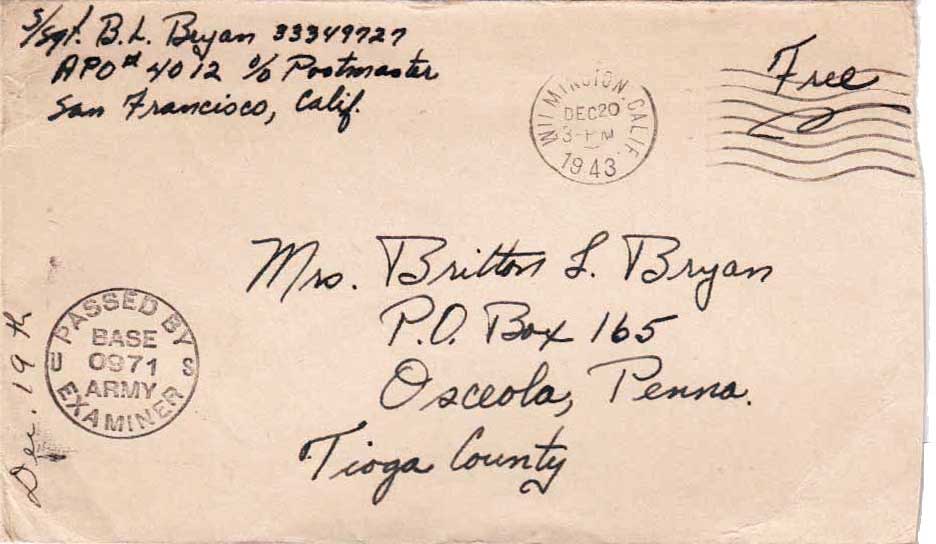 S/Sgt. B. L. Bryan 33349727
APO # 4012 c/o Postmaster
San Francisco, Calif.
Free
WILMINGTON. CALIF.
DEC 20
3-PM
1943
Mrs. Britton L. Bryan
P.O. Box 165
Osceola, Penna.
Tioga County
PASSED BY
BASE
U 0971 S
ARMY
EXAMINER
Dec. 19th